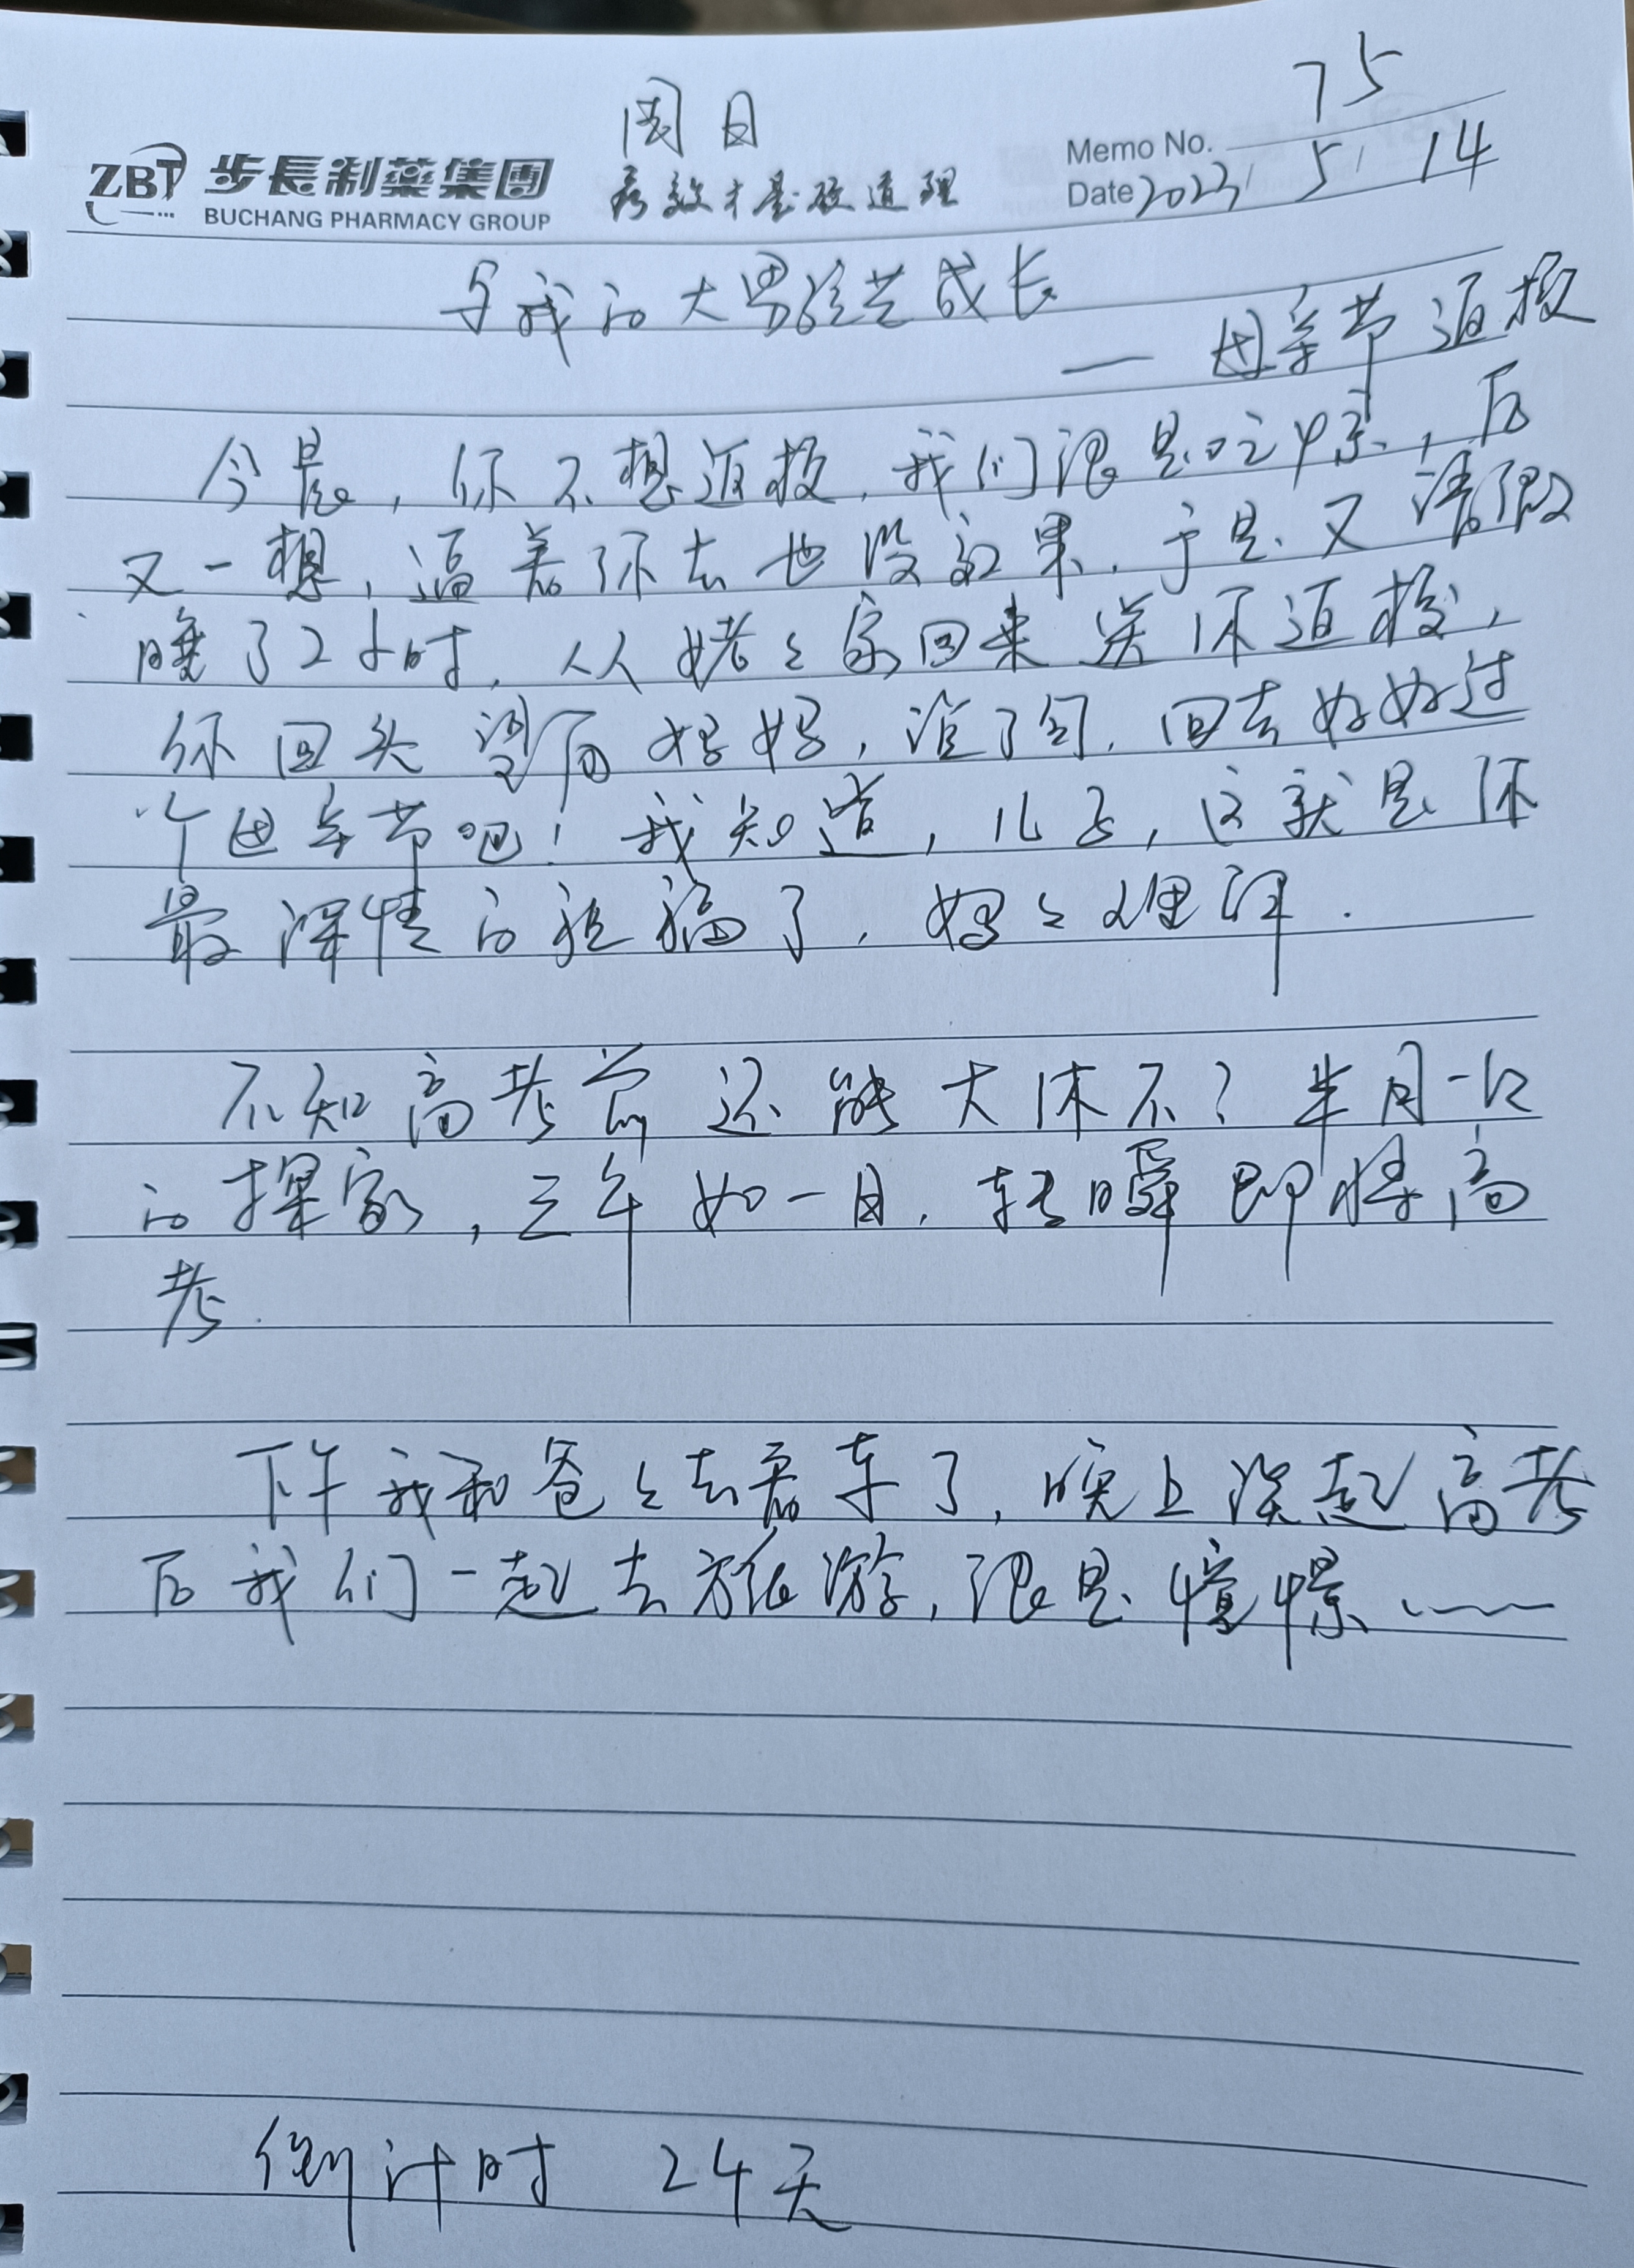 周日
75
Memo No.
ZBT 步長制藥集團
BUCHANG PHARMACY GROUP
疗效才是硬道理
Date 2023/ 5/ 14
与我的大男孩共成长
— 母亲节返校
今晨,你不想返校,我们很是吃惊,后
又一想,逼着你去也没效果,于是又请假
晚了2小时,从姥姥家回来送你返校,
你回头望向妈妈,说了句,回去好好过
个母亲节吧!我知道,儿子,这就是你
最深情的祝福了,妈妈理解.
不知高考前还能大休不?半月一次
的探家,三年如一日,转瞬即将高
考.
下午我和爸爸去看车了,晚上谈起高考
后我们一起去旅游,很是憧憬……
倒计时 24天